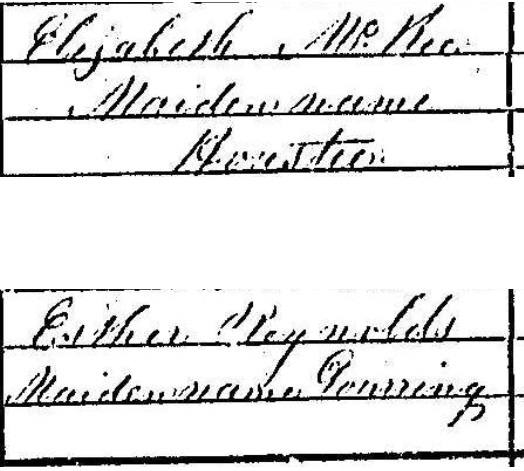 Elizabeth McKee
Maiden name
Houston
Esther Reynolds
Maiden name